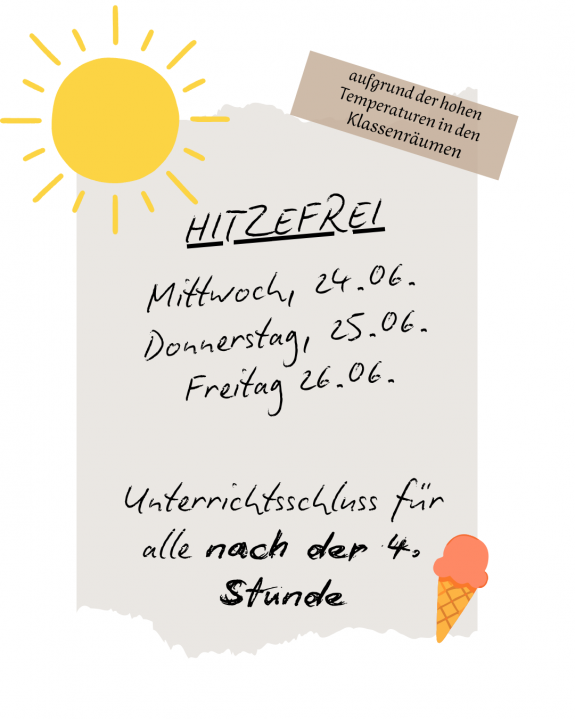 aufgrund der hohen
Temperaturen in den
Klassenräumen
HITZEFREI
Mittwoch, 24.06.
Donnerstag, 25.06.
Freitag 26.06.
Unterrichtsschluss für
alle nach der 4.
Stunde